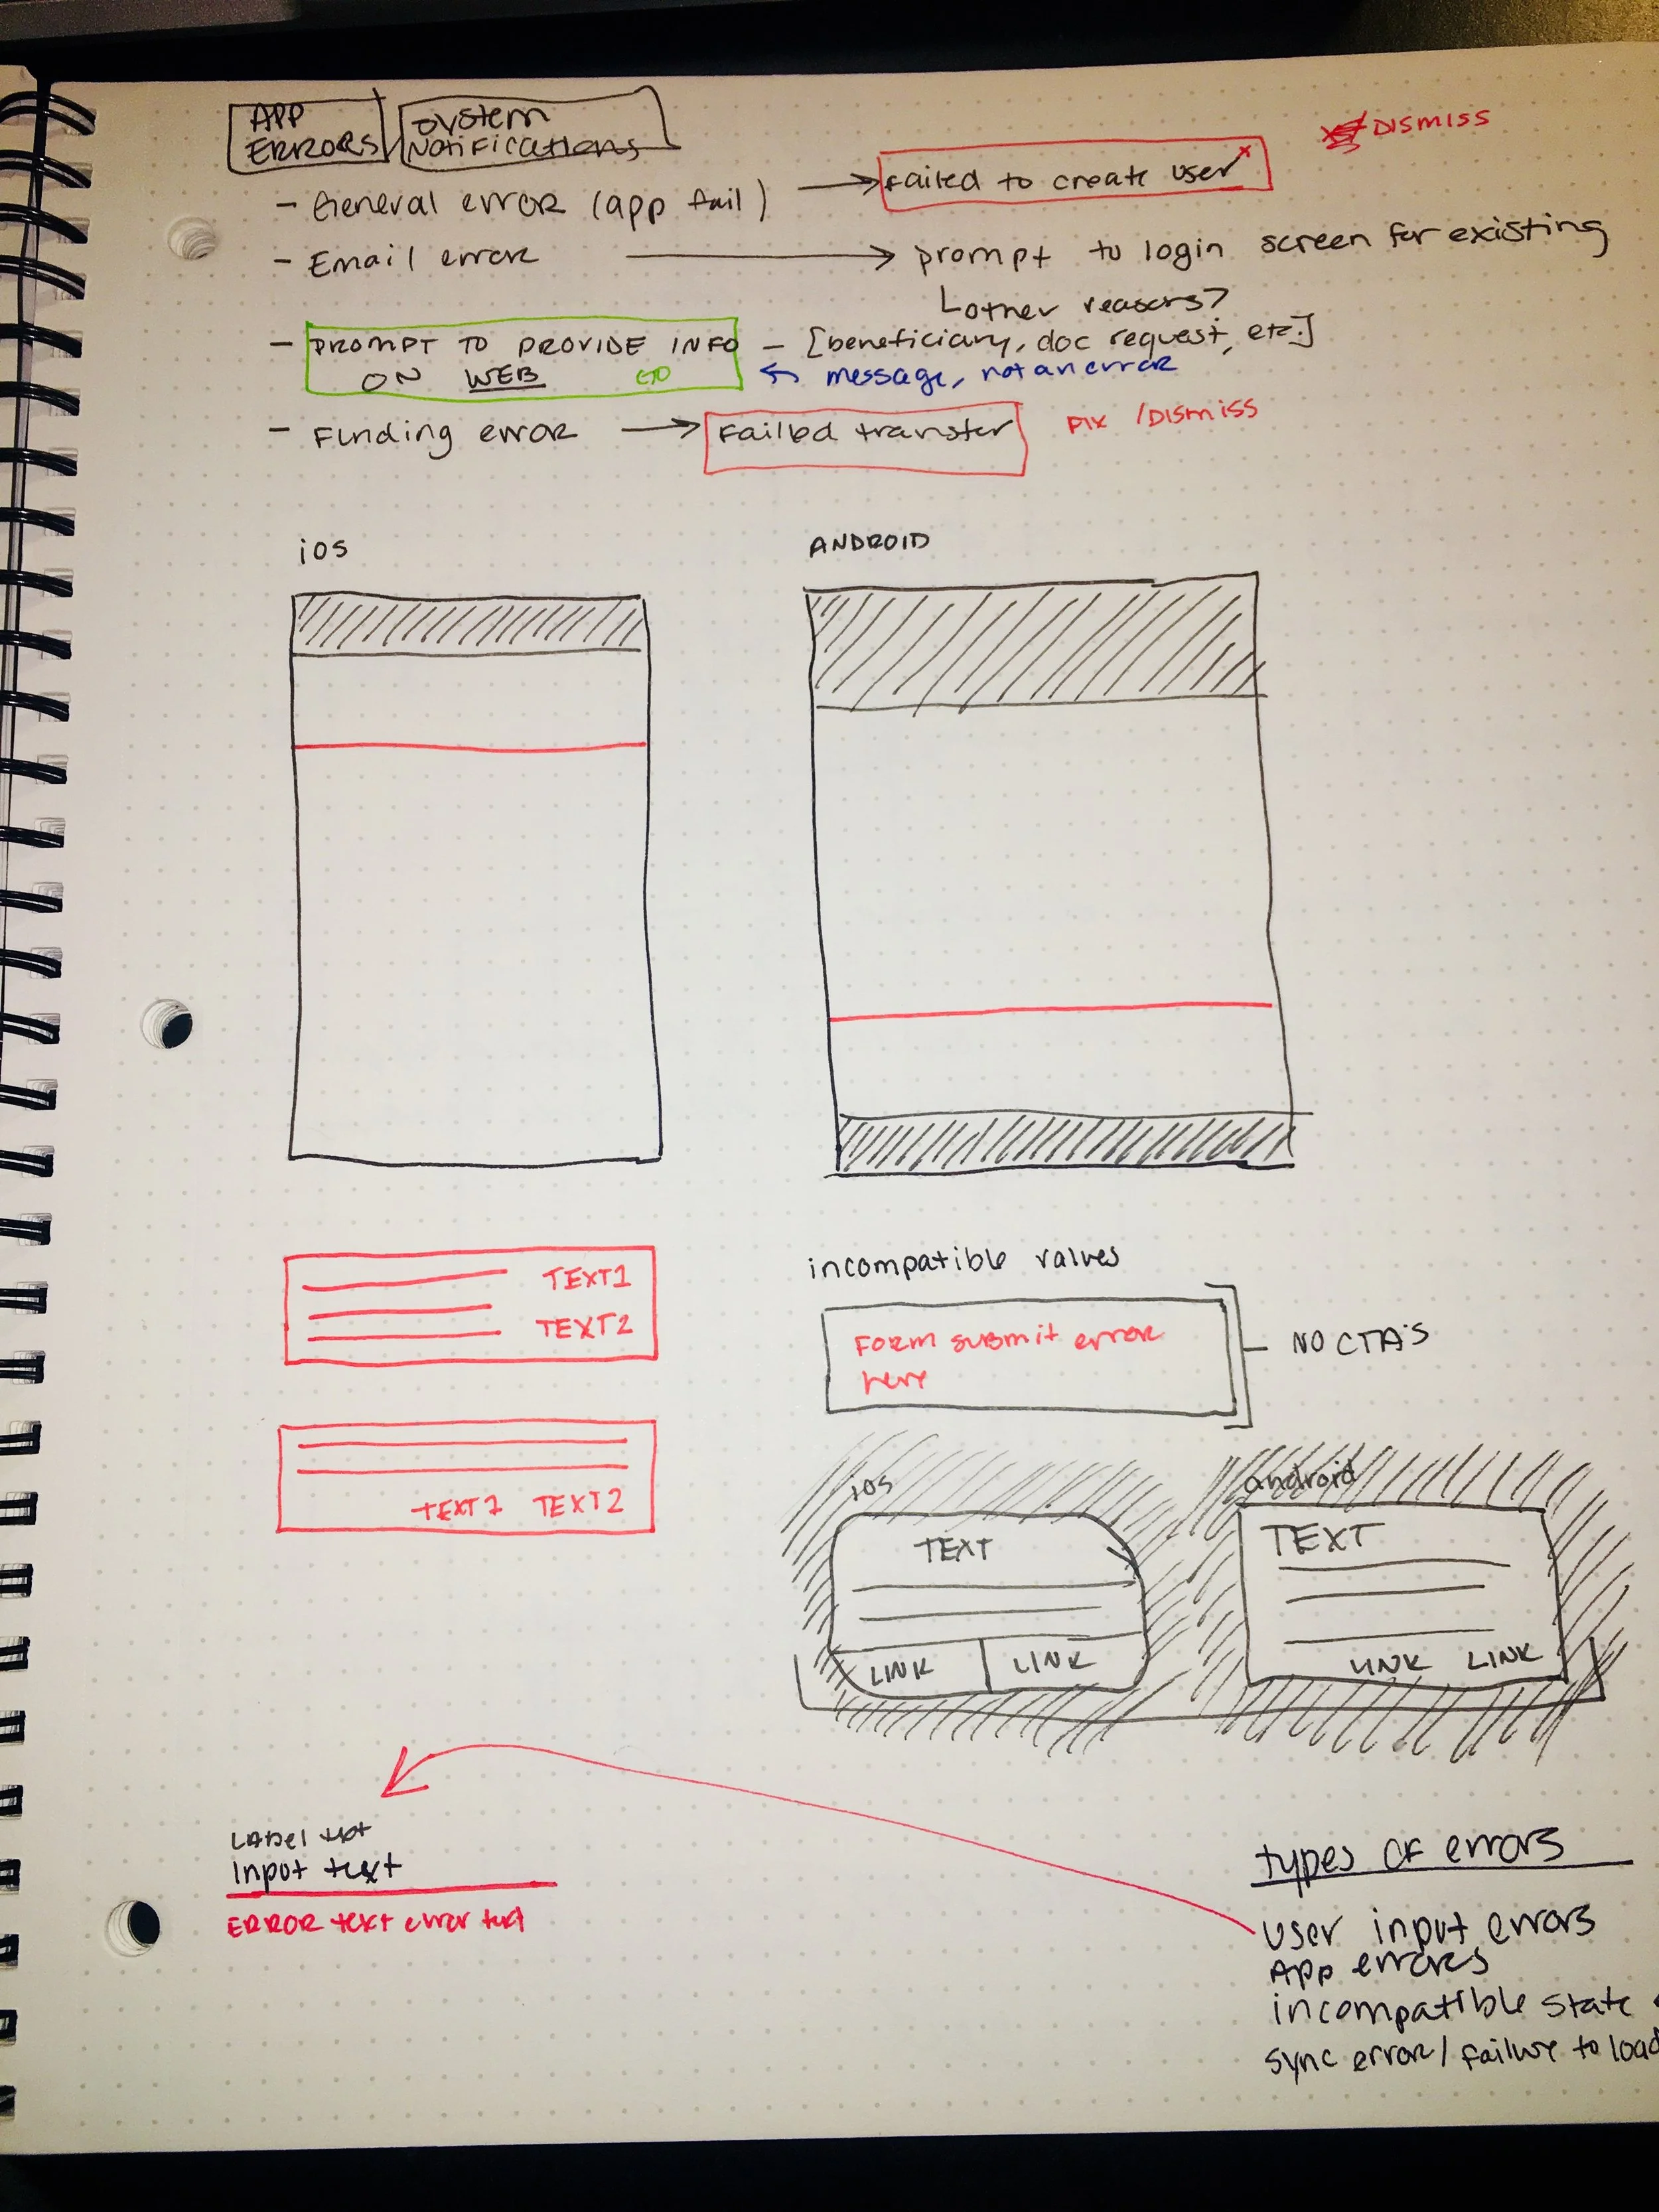 APP ERRORS
System Notifications
- General error (app fail) → Failed to create user x
DISMISS
- Email error → prompt to login screen for existing
other reasons?
- PROMPT TO PROVIDE INFO ON WEB - [beneficiary, doc request, etc.]
← message, not an error
- Funding error → Failed transfer FIX / DISMISS
ios
ANDROID
TEXT1
TEXT2
TEXT1 TEXT2
incompatible values
Form submit error
here
NO CTA'S
ios
TEXT
LINK LINK
android
TEXT
LINK LINK
Label text
Input text
ERROR text error text
types of errors
user input errors
App errors
incompatible state
sync error / failure to load